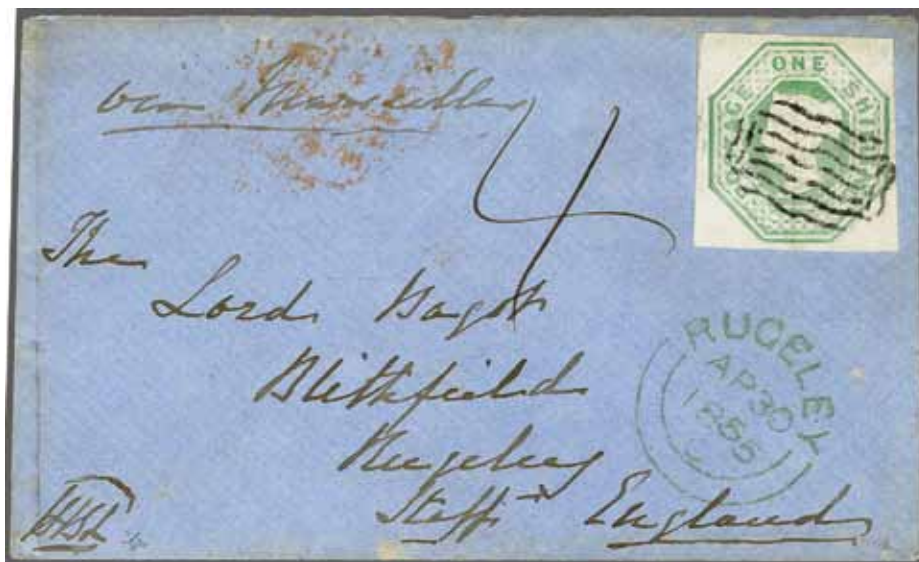 via Marseilles
4
ONE SHI
AGE
The
Lord Bagot
Blithfield
Rugeley
Staffs England
RUGELEY
AP 30
1855